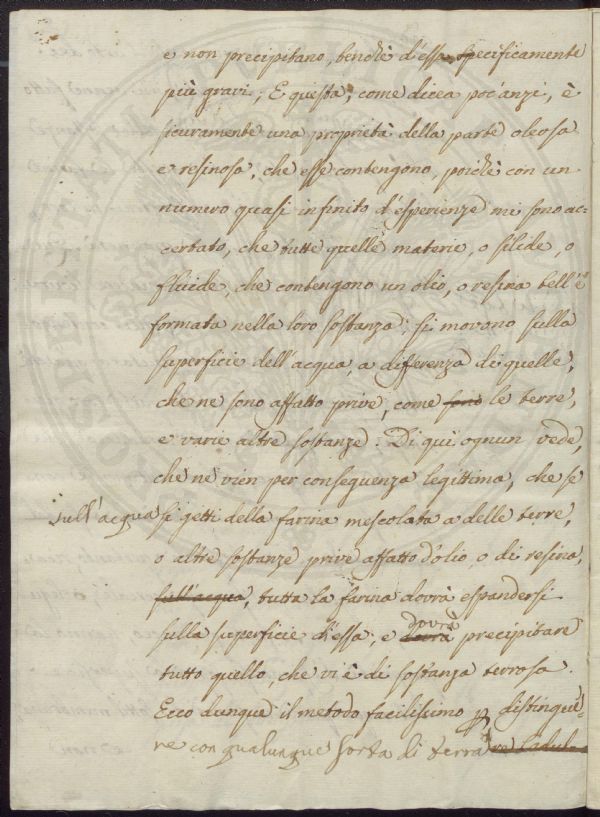 e non precipitano, benchè d'essa specificamente
più gravi; E questa, come dicea poc'anzi, è
sicuramente una proprietà della parte oleosa
e resinosa, che esse contengono, poichè con un
numero quasi infinito d'esperienze mi sono ac-
certato, che tutte quelle materie, o solide, o
fluide, che contengono un olio, o resina bell'e
formata nella loro sostanza, si movono sulla
superficie dell'acqua, a differenza di quelle,
che ne sono affatto prive, come sono le terre,
e varie altre sostanze. Di qui ognun vede,
che ne vien per conseguenza legittima, che se
sull'acqua si getti della farina mescolata a delle terre,
o altre sostanze prive affatto d'olio, o di resina,
sull'acqua, tutta la farina dovrà espandersi
dovrà
sulla superficie d'essa, e dovrà precipitare
tutto quello, che vi è di sostanza terrosa.
Ecco dunque il metodo facilissimo p distingue-
re con qualunque sorta di terra